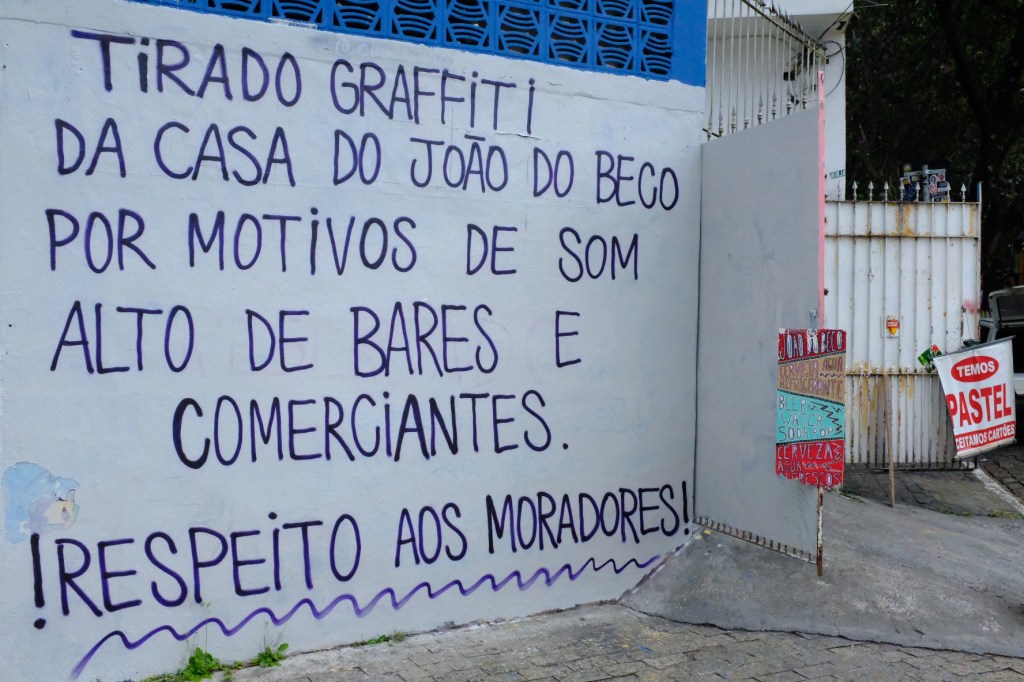 TiRADO GRAFFiTi
DA CASA DO JOÃO DO BECO
POR MOTiVOS DE SOM
ALTO DE BARES E
COMERCiANTES.
!RESPEiTO AOS MORADORES!
JOÃO DO BECO
AGUA
BEER
WATER
SODA POP
CERVEZA
AGUA
REFRESCOS
TEMOS
PASTEL
ACEITAMOS CARTÕES